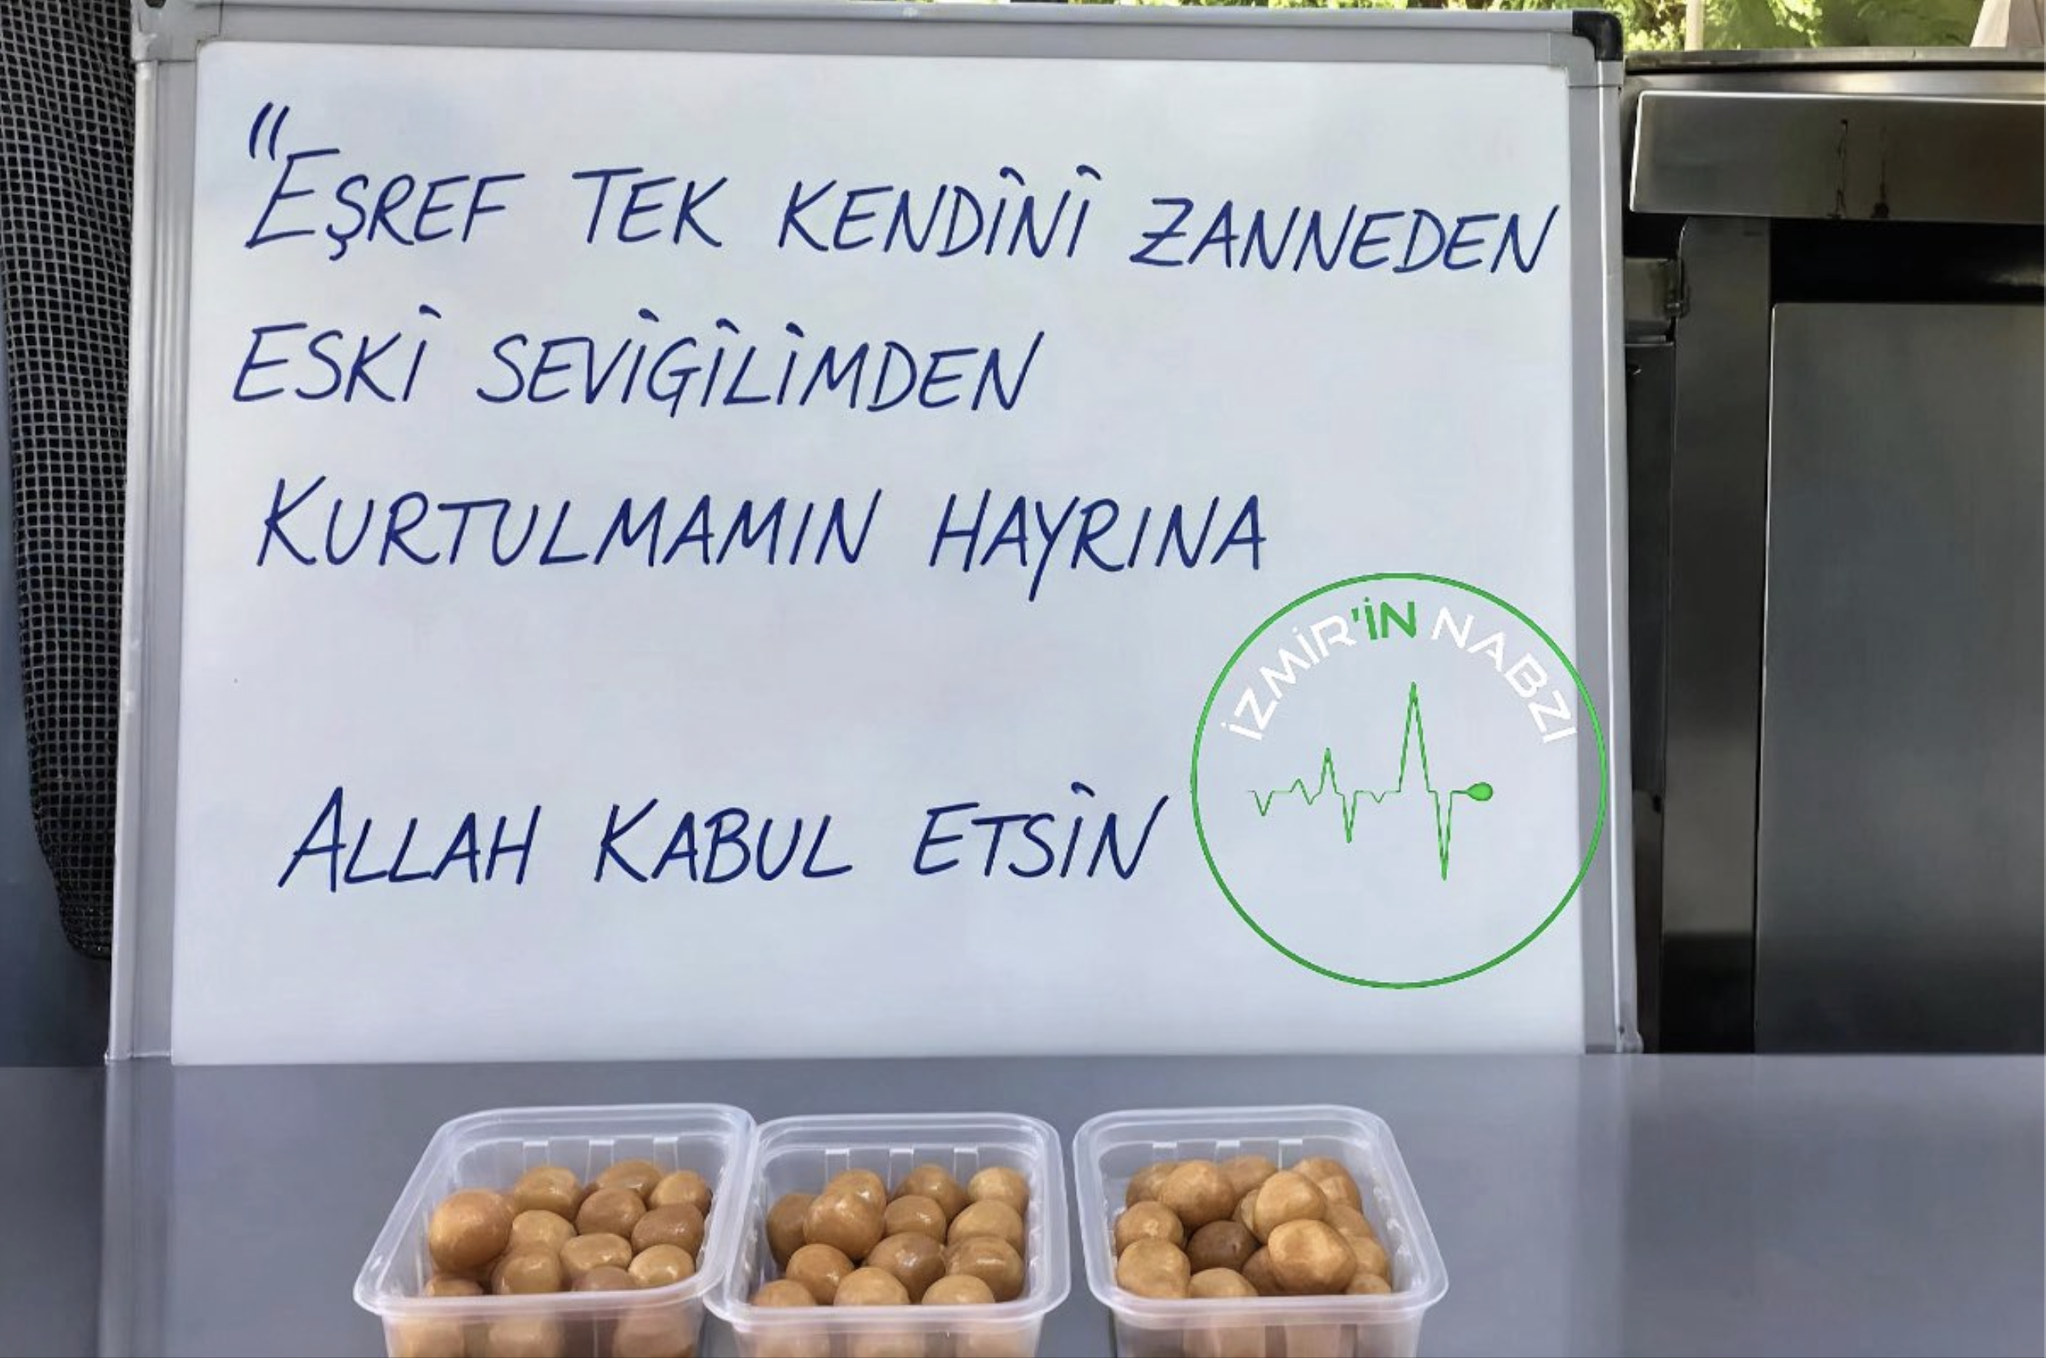 "EŞREF TEK KENDİNİ ZANNEDEN
ESKİ SEVİGİLİMDEN
KURTULMAMIN HAYRINA
ALLAH KABUL ETSİN
İZMİR'İN NABZI